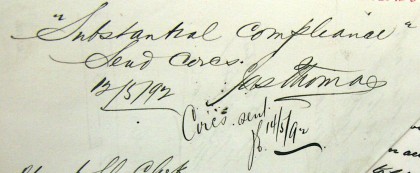 "Substantial compliance"
Send Corcs.
12/5/92 Jas Thomas
Corcs. sent.
14/5/92